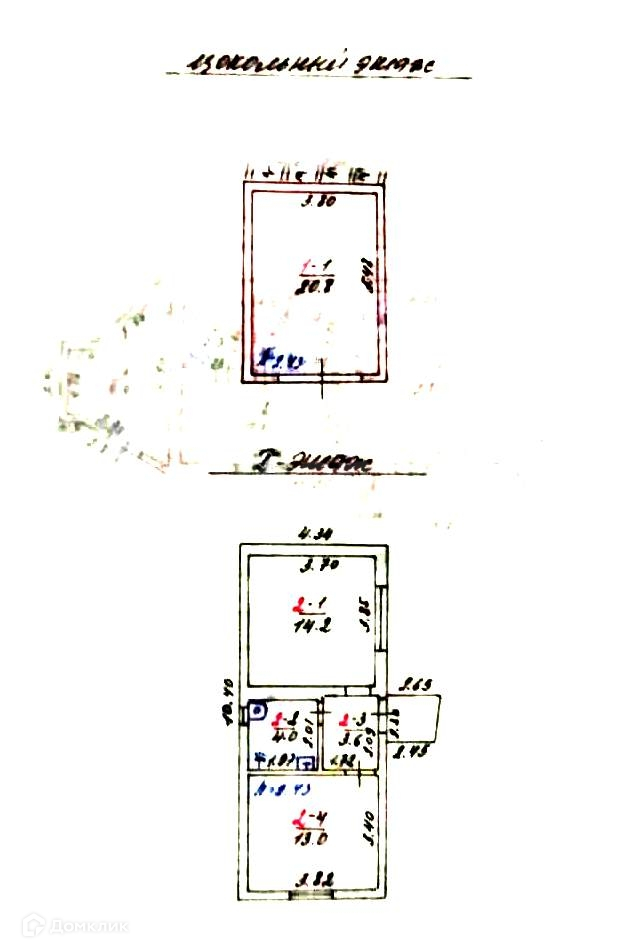 Цокольный этаж
3.80
1-1
20.8
5.48
I-этаж
4.34
3.70
2-1
14.2
3.85
10.40
2.65
2-2
4.0
2.01
2-3
3.6
2.09
1.97
1.72
2.45
h=2.43
2-4
13.0
3.40
3.82
Домклик